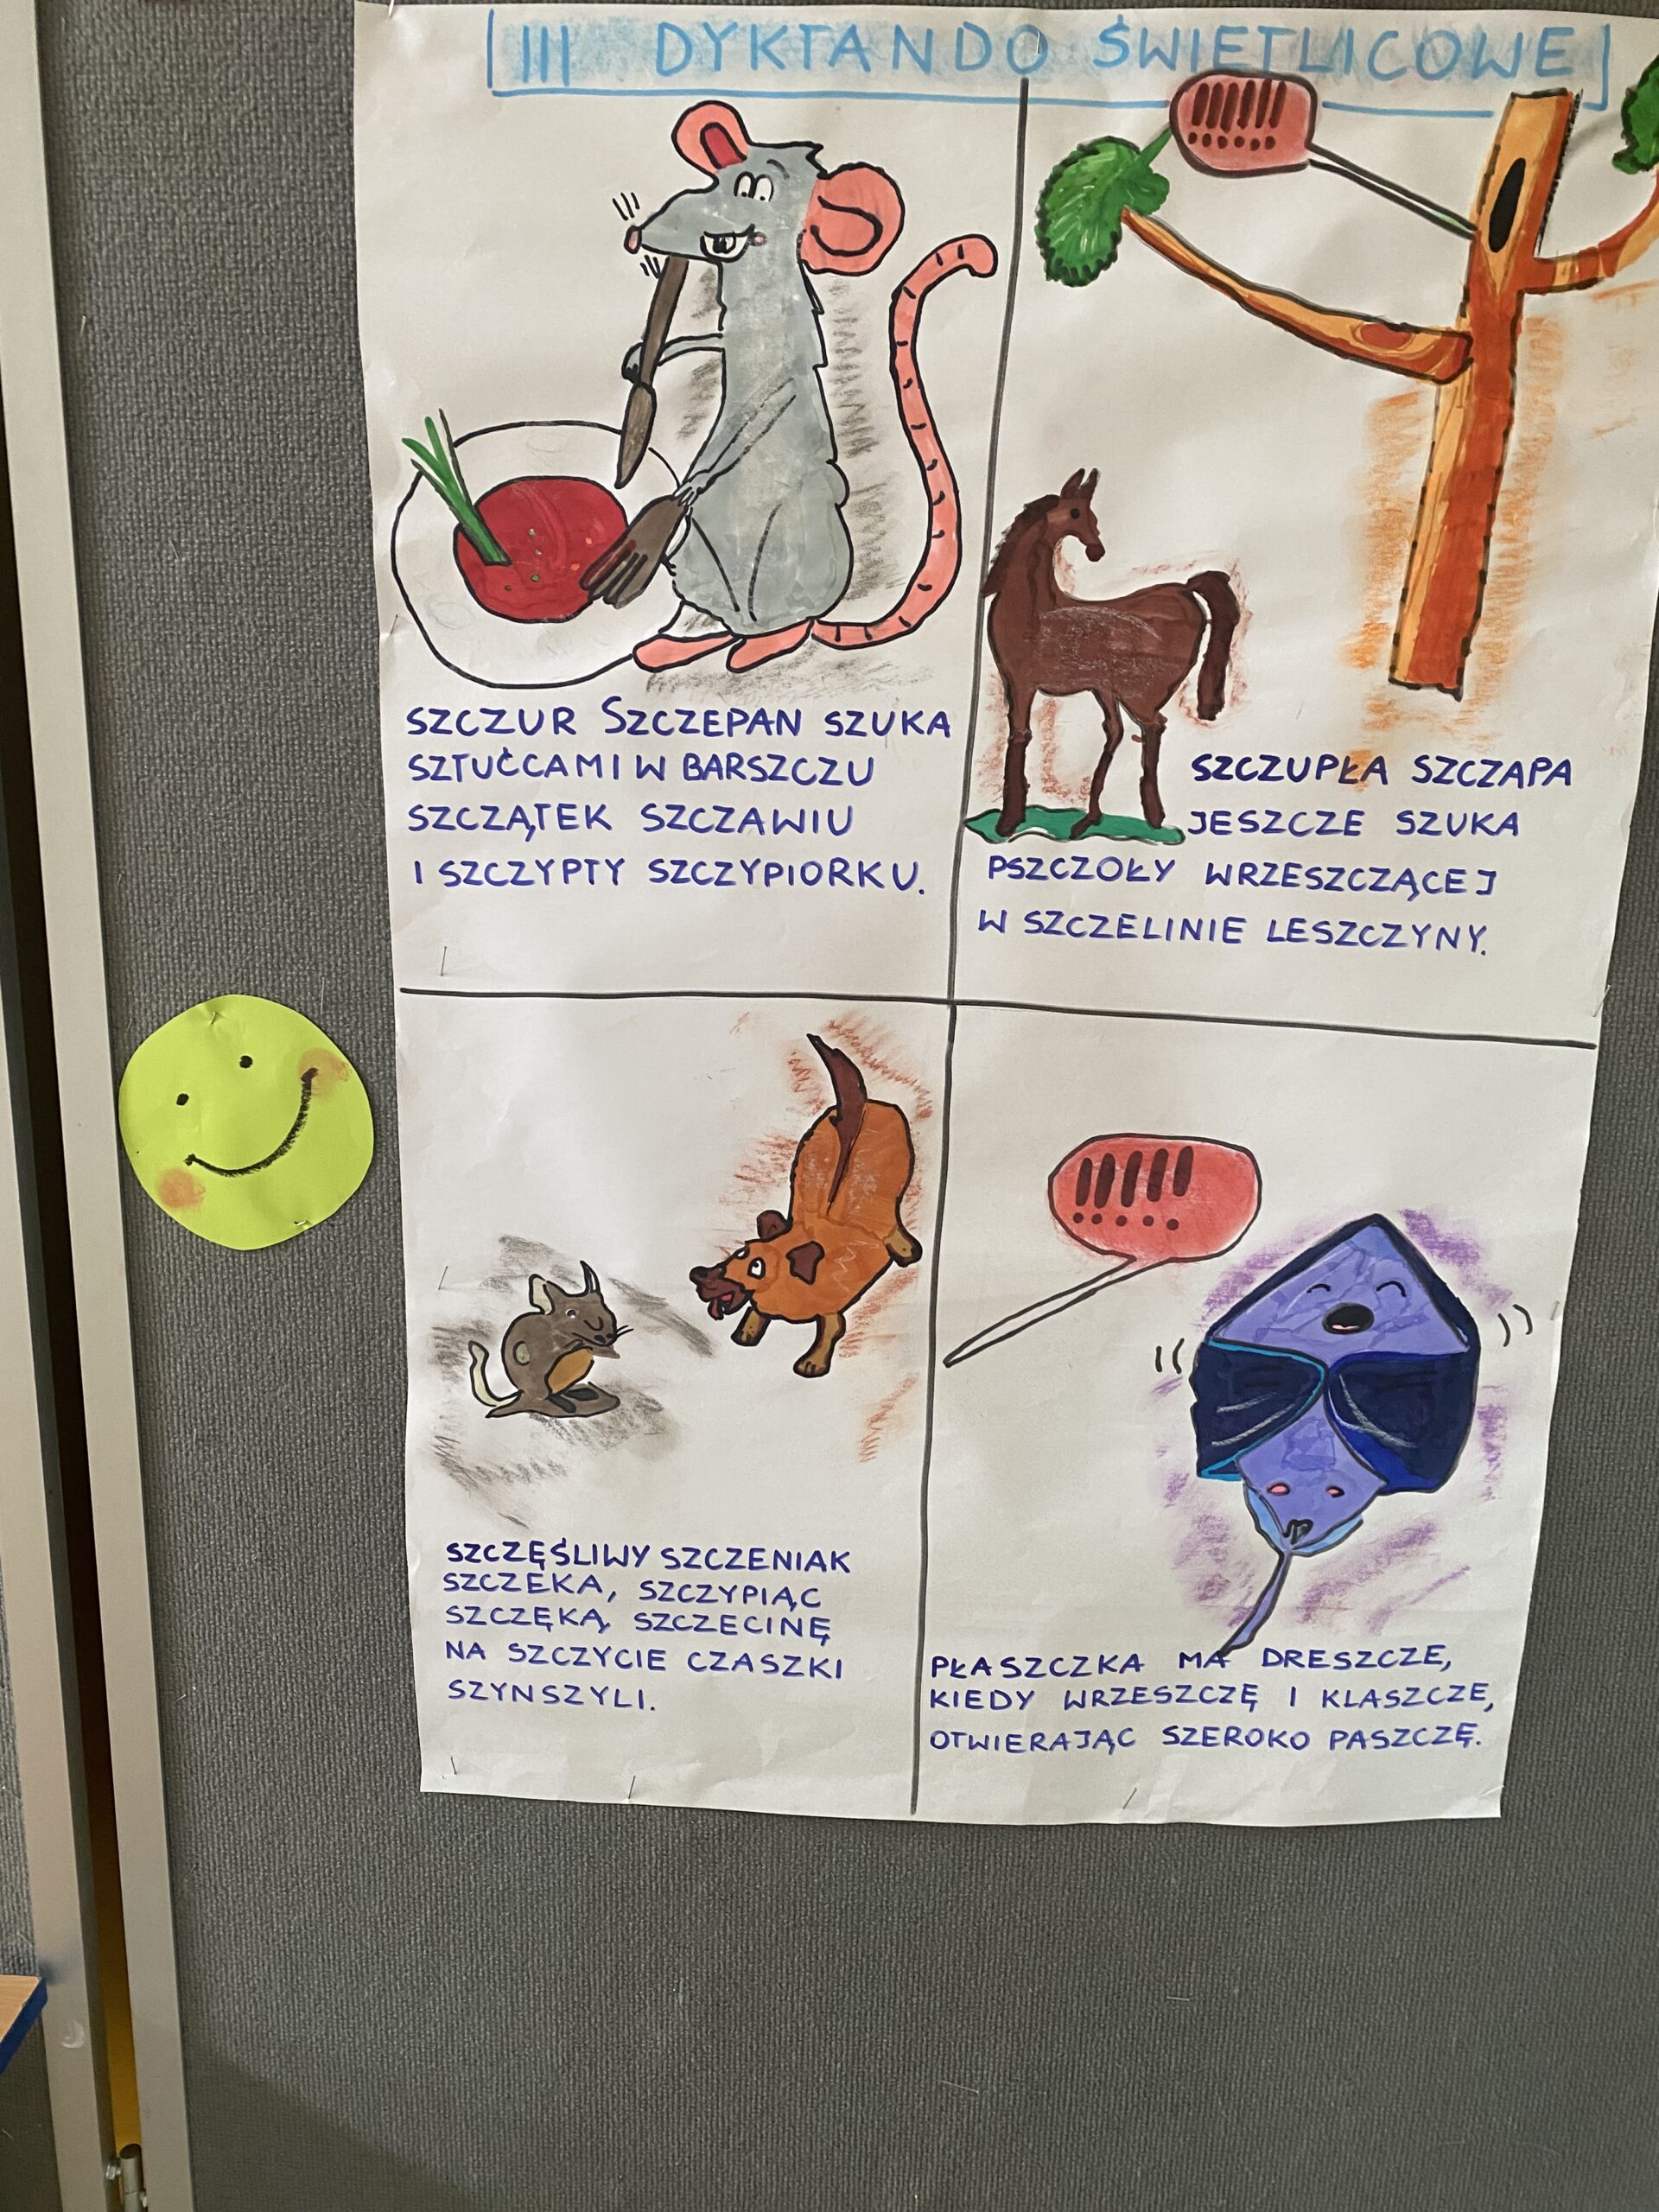 III DYKTANDO ŚWIETLICOWE
SZCZUR SZCZEPAN SZUKA
SZTUĆCAMI W BARSZCZU
SZCZĄTEK SZCZAWIU
I SZCZYPTY SZCZYPIORKU.
SZCZUPŁA SZCZAPA
JESZCZE SZUKA
PSZCZOŁY WRZESZCZĄCEJ
W SZCZELINIE LESZCZYNY.
SZCZĘŚLIWY SZCZENIAK
SZCZEKA, SZCZYPIĄC
SZCZĘKĄ SZCZECINĘ
NA SZCZYCIE CZASZKI
SZYNSZYLI.
PŁASZCZKA MA DRESZCZE,
KIEDY WRZESZCZĘ I KLASZCZE,
OTWIERAJĄC SZEROKO PASZCZĘ.